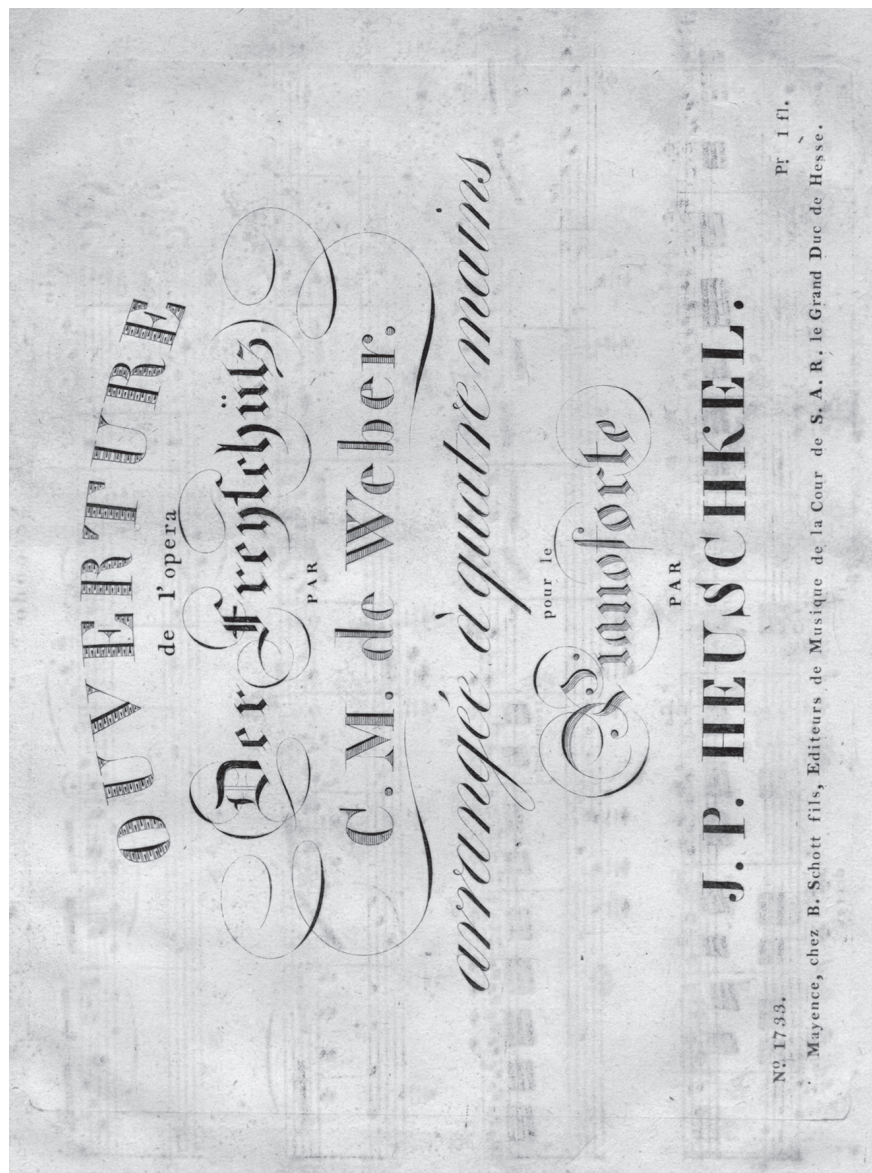 OUVERTURE
de l'opera
Der Freyschütz
PAR
C. M. de Weber.
arrangée à quatre mains
pour le
Pianoforte
PAR
J. P. HEUSCHKEL.
Nº 1733. Pr. 1 fl.
Mayence, chez B. Schott fils, Editeurs de Musique de la Cour de S. A. R. le Grand Duc de Hesse.